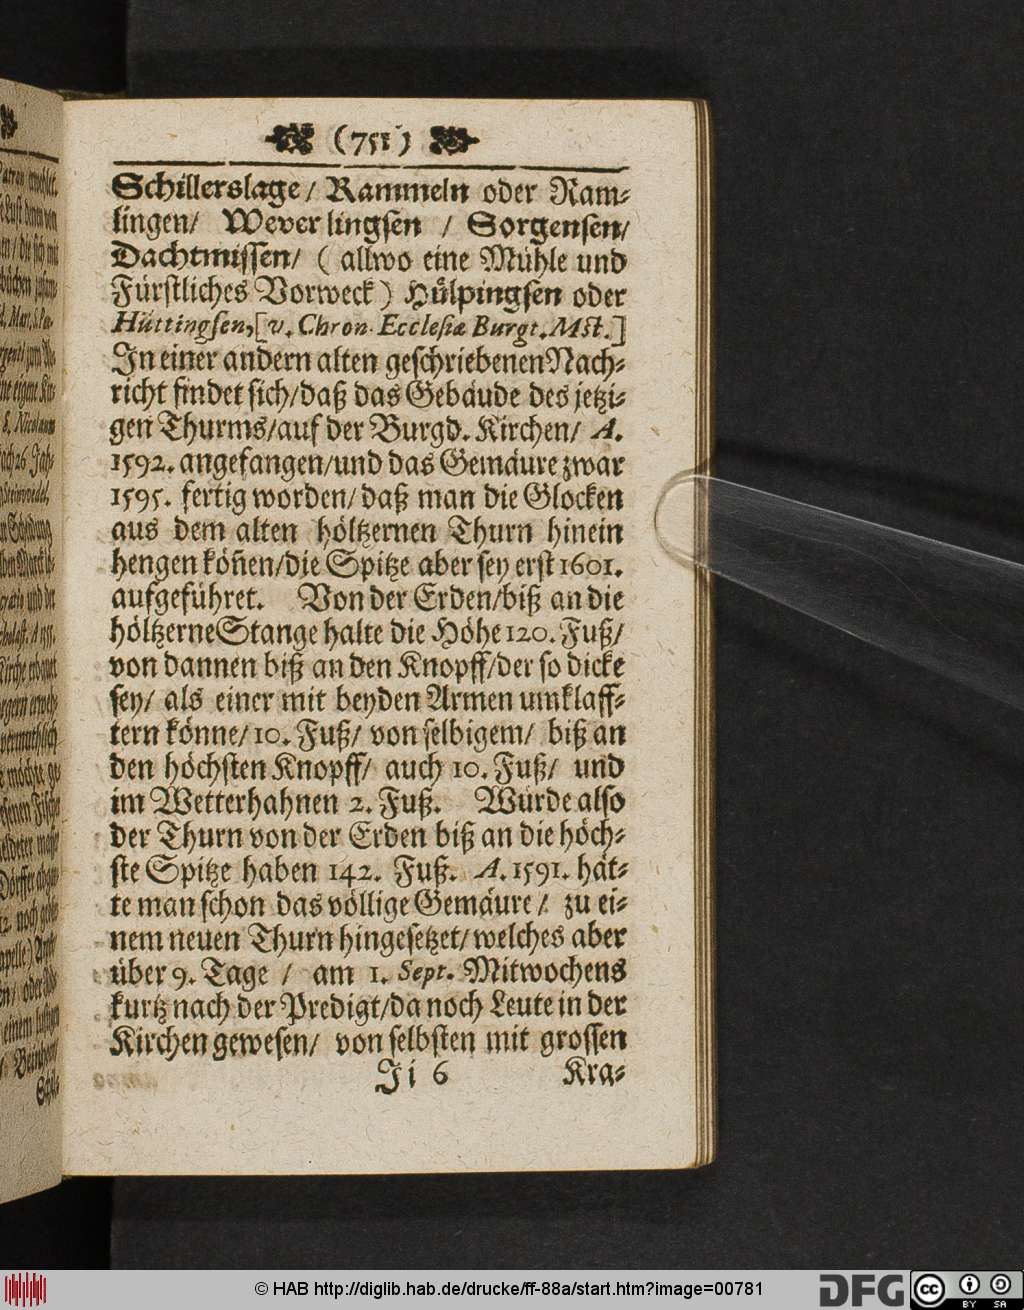 (751)
Schillerslage / Rammeln oder Ram-
lingen/ Weverlingsen / Sorgensen/
Dachtmissen/ ( allwo eine Mühle und
Fürstliches Vorweck ) Hülpingsen oder
Hüttingsen, [v. Chron. Ecclesiæ Burgt. Mst.]
In einer andern alten geschriebenen Nach-
richt findet sich/daß das Gebäude des jetzi-
gen Thurms/auf der Burgd. Kirchen/ A.
1592. angefangen/und das Gemäure zwar
1595. fertig worden/ daß man die Glocken
aus dem alten höltzernen Thurn hinein
hengen köñen/die Spitze aber sey erst 1601.
aufgeführet. Von der Erden/biß an die
höltzerne Stange halte die Höhe 120. Fuß/
von dannen biß an den Knopff/der so dicke
sey/ als einer mit beyden Armen umklaff-
tern könne/ 10. Fuß/ von selbigem/ biß an
den höchsten Knopff/ auch 10. Fuß/ und
im Wetterhahnen 2. Fuß. Würde also
der Thurn von der Erden biß an die höch-
ste Spitze haben 142. Fuß. A. 1591. hät-
te man schon das völlige Gemäure / zu ei-
nem neuen Thurn hingesetzet/ welches aber
über 9. Tage / am 1. Sept. Mitwochens
kurtz nach der Predigt/da noch Leute in der
Kirchen gewesen/ von selbsten mit grossen
Ji 6 Kra-
© HAB http://diglib.hab.de/drucke/ff-88a/start.htm?image=00781
DFG
cc
BY SA